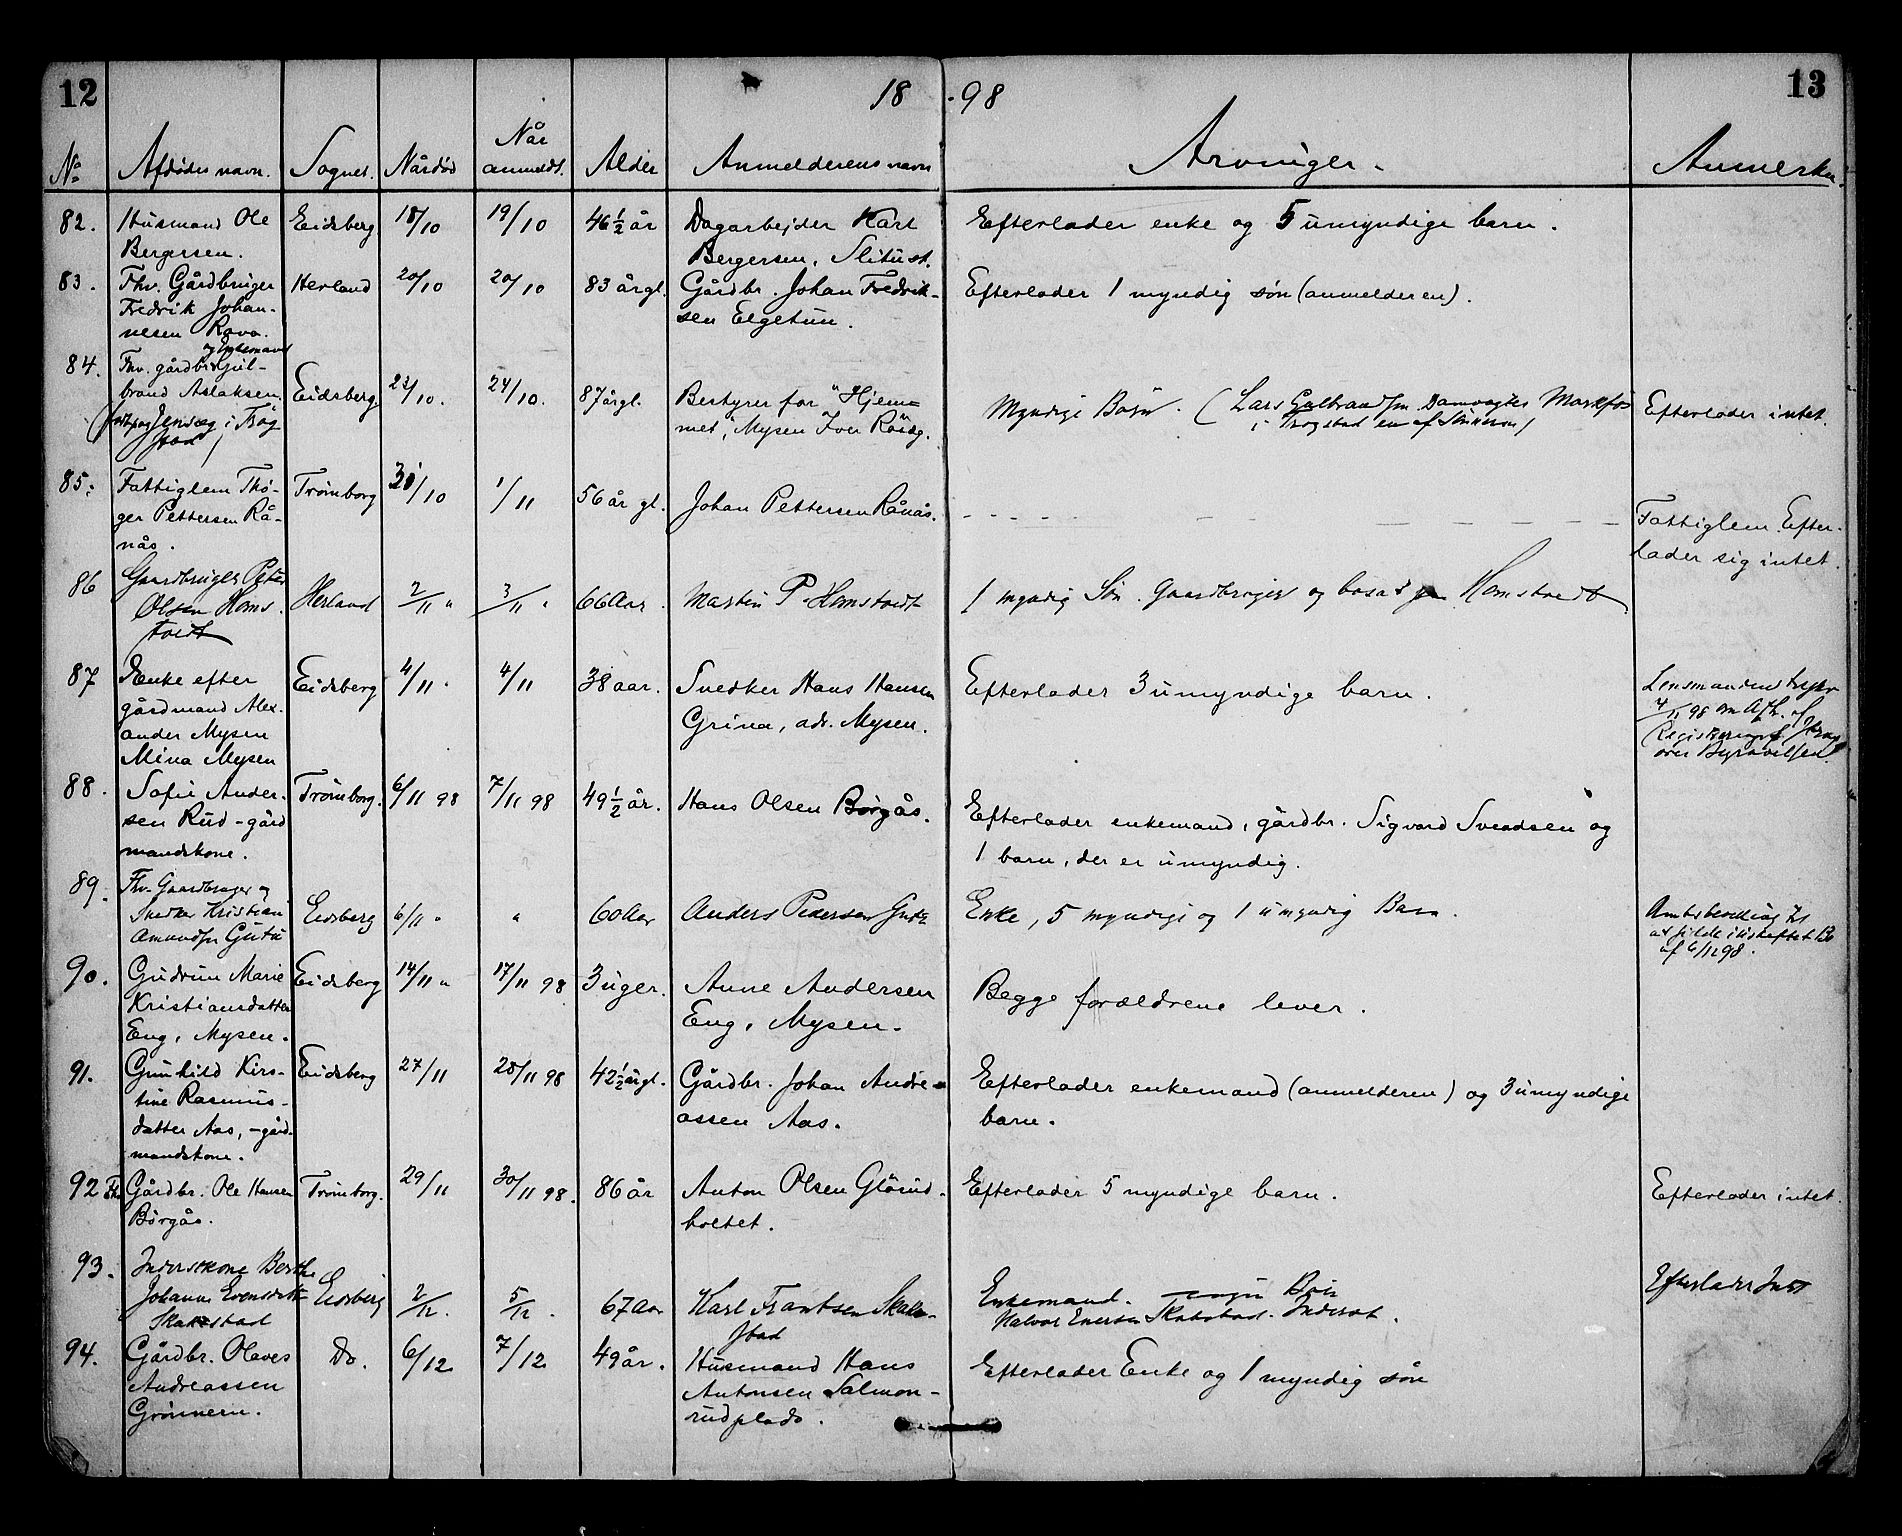 12
18
98
13
No
Afdødes navn.
Sognet.
Når død
Når anmeldt.
Alder
Anmelderens navn
Arvinger.
Anmerkn.
82. Husmand Ole Eidsberg 18/10 19/10 46½ år Dagarbejder Karl Efterlader enke og 5 umyndige barn.
Bergersen. Bergersen, Slitust.
83. Fhv. Gårdbruger Herland 20/10 20/10 83 årgl. Gårdbr. Johan Fredrik- Efterlader 1 myndig søn (anmelderen).
Fredrik Johan- sen Elgetun.
nesen Rava.
og Enkemand
84. Fhv. gårdbr. Gul-
brand Aslaksen Eidsberg. 23/10. 24/10. 87 årgl. Bestyrer for "Hjem- Myndige Børn. (Lars Gulbrandsen Damvogter Morkfos Efterlader intet.
i Trøg- met", Mysen Iver i Trøgstad en af Sønnerne)
stad)
85. Fattiglem Thø- Trømborg 31/10 1/11 56 år gl. Johan Pettersen Rånås. Fattiglem. Efter-
ger Pettersen Rå- lader sig intet.
nås.
86 Gaardbruger Peter Herland 2/11 " 3/11 " 66 Aar. Martin P. Homstvedt 1 myndig Søn. Gaardbruger og bosat Homstvedt.
Olsen Homs-
tvedt
87 Enke efter Eidsberg 4/11. 4/11 38 aar. Snedker Hans Hansen Efterlader 3 umyndige barn. Lensmanden
gårdmand Alex- Grina, adr. Mysen. 4/11 98 om Afh. af
ander Mysen
Mina Mysen
88. Sofie Ander- Trømborg. 6/11 98 7/11 98 49½ år. Hans Olsen Børgås. Efterlader enkemand, gårdbr. Sigvard Svendsen og
sen Rud - gård 1 barn, der er umyndig.
mandskone.
89. Fhv. Gaardbruger og
Snedker Kristian Eidsberg 6/11 " " 60 Aar Anders Pedersen Gutu Enke, 5 myndige og 1 umyndig Barn.
Amundsen Gutu af 6/12 98.
90. Gudrun Marie Eidsberg 14/11 " 17/11 98 3 uger. Anne Andersen Begge forældrene lever.
Kristiansdatter Eng, Mysen.
Eng, Mysen.
91. Gunhild Kirs- Eidsberg 27/11 28/11 98 42½ årgl. Gårdbr. Johan Andre- Efterlader enkemand (anmelderen) og 3 umyndige
tine Rasmus- assen Aas. barn.
datter Aas, - gård-
mandskone.
92 Fhv. Gårdbr. Ole Hansen Trømborg. 29/11 30/11 98. 86 år Anton Olsen Glörud- Efterlader 5 myndige barn. Efterlader intet.
Børgås. holtet.
93. Inderstkone Berthe Efterlader Intet
Johanne Evensdatter Eidsberg 2/12. 5/12. 67 Aar Karl Frantsen Skak- Enkemand. Børn
Skakstad stad Halvor Enersen Skakstad. Inderst.
94. Gårdbr. Olaves Do. 6/12 7/12 49 år. Husmand Hans Efterlader Enke og 1 myndig søn
Andreassen Antonsen Salmon-
Grønnern. rudplads.